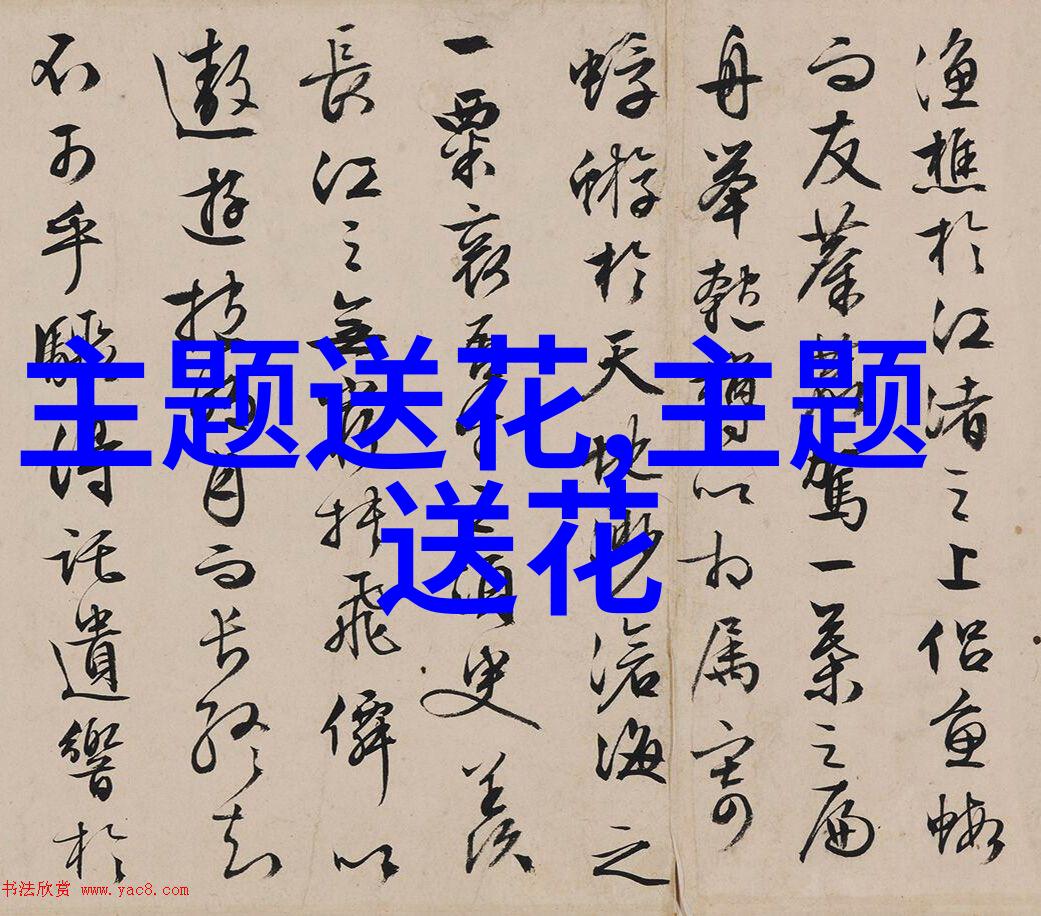 漁樵於江渚之上侶魚蝦
而友麋鹿駕一葉之扁
舟舉匏樽以相屬寄
蜉蝣於天地渺滄海之
一粟哀吾生之須臾羨
長江之無窮挾飛僊以
遨遊抱明月而長終知
不可乎驟得託遺響於
主题送花,主题
送花
书法欣赏 www.yac8.com